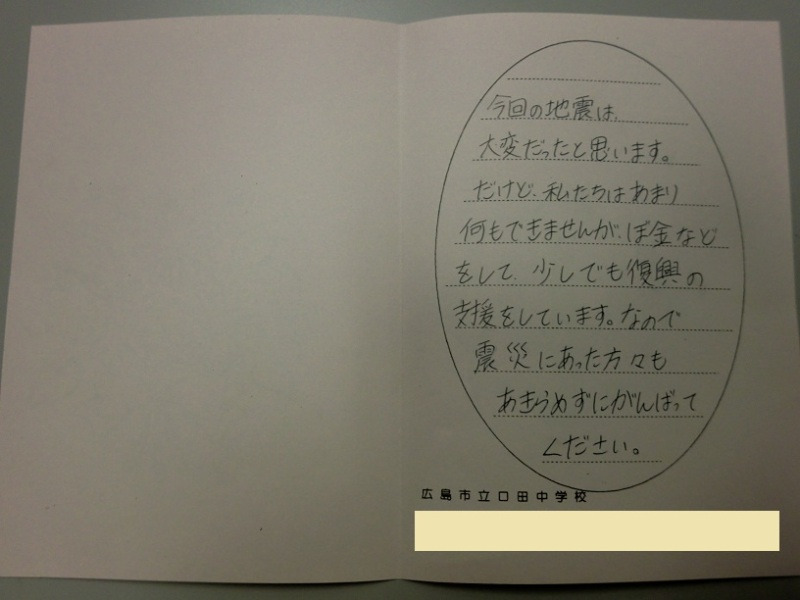 今回の地震は、
大変だったと思います。
だけど、私たちはあまり
何もできませんが、ぼ金など
をして、少しでも復興の
支援をしています。なので
震災にあった方々も
あきらめずにがんばって
ください。
広島市立口田中学校